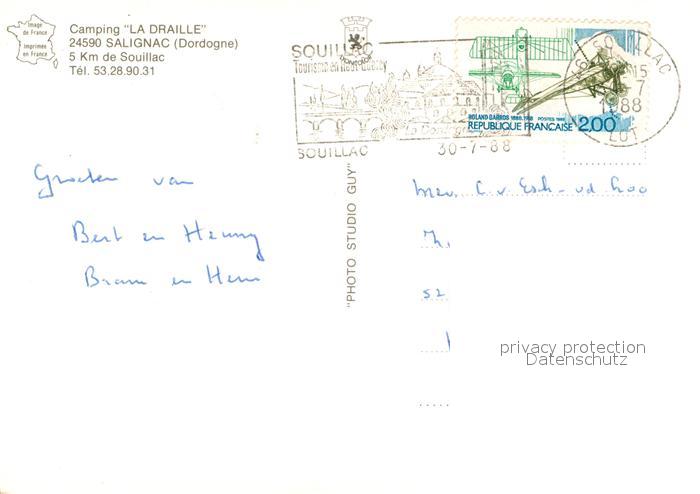 Image
de France
Imprimée
en France
Camping "LA DRAILLE"
24590 SALIGNAC (Dordogne)
5 Km de Souillac
Tél. 53.28.90.31
SOUILLAC
Tourisme en Haut-Quercy
SOUILLAC
30-7-88
LOT
ROLAND GARROS 1888.1918 POSTES 1988
REPUBLIQUE FRANÇAISE 2,00
"PHOTO STUDIO GUY"
Groeten van
Bert en Henny
Bram en
Mev. C. v. Esch-vd
52
privacy protection
Datenschutz